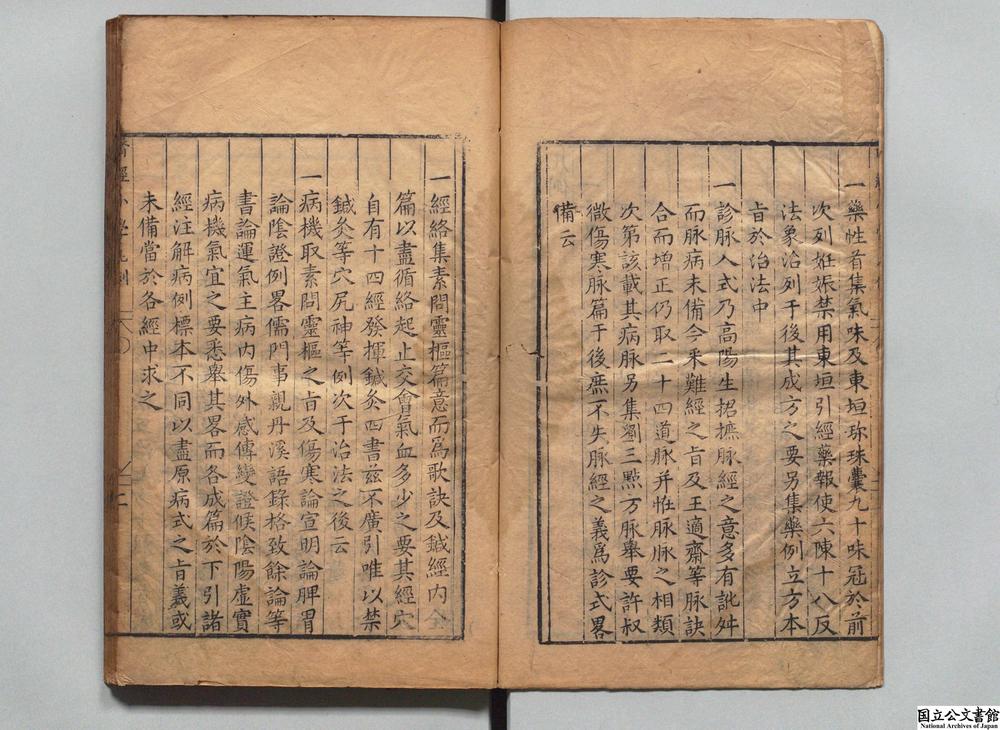 一藥性首集氣味及東垣珎珠囊九十味冠於前
次列妊娠禁用東垣引經藥報使六陳十八反
法象治列于後其成方之要另集藥例立方本
㫖於治法中
一診脉入式乃髙陽生捃摭脉經之意多有訛舛
而脉病未備今采難經之㫖及王適齋等脉訣
合而增正仍取二十四道脉并恠脉脉之相類
次第該載其病脉另集劉三點方脉舉要許叔
微傷寒脉篇于後庶不失脉經之義為診式畧
備云
一經絡集素問靈樞篇意而爲歌訣及鍼經内全
篇以盡循絡起止交會氣血多少之要其經穴
自有十四經發揮鍼灸四書兹不廣引唯以禁
鍼灸等穴尻神等例次于治法之後云
一病機取素問靈樞之㫖及傷寒論宣明論脾胃
論陰證例畧儒門事親丹溪語錄格致餘論等
書論運氣主病内傷外感傳變證候陰陽虛實
病機氣宜之要悉舉其畧而各成篇於下引諸
經注解病例標本不同以盡原病式之㫖義或
未備當於各經中求之
国立公文書館
National Archives of Japan